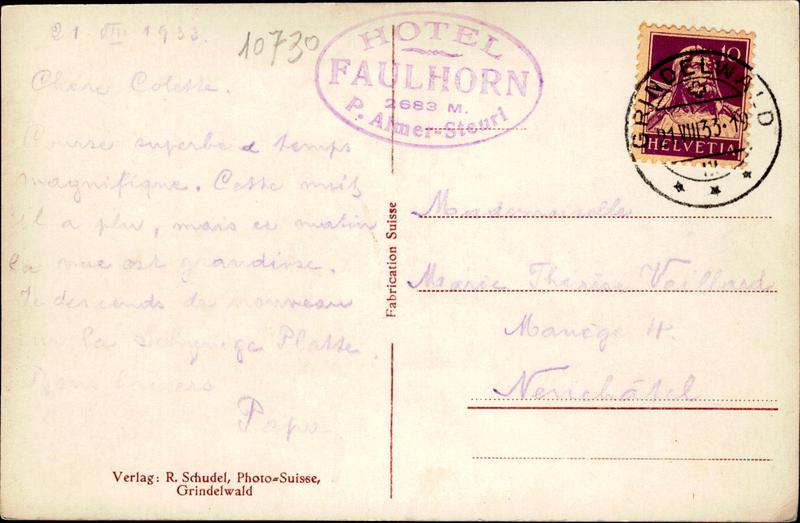 21 VIII 1933.
10730
HOTEL
FAULHORN
2683 M.
P. Almer-Steuri
10
HELVETIA
GRINDELWALD
21.VIII.33
Chère Colette.
Course superbe temps
magnifique. Cette nuit
il a plu, mais ce matin
la vue est grandiose.
Je descends de nouveau
sur la Schynige Platte.
Bons baisers
Papa
Fabrication Suisse
Mademoiselle
Marie Thérèse
Manège 4.
Neuchâtel
Verlag: R. Schudel, Photo=Suisse,
Grindelwald